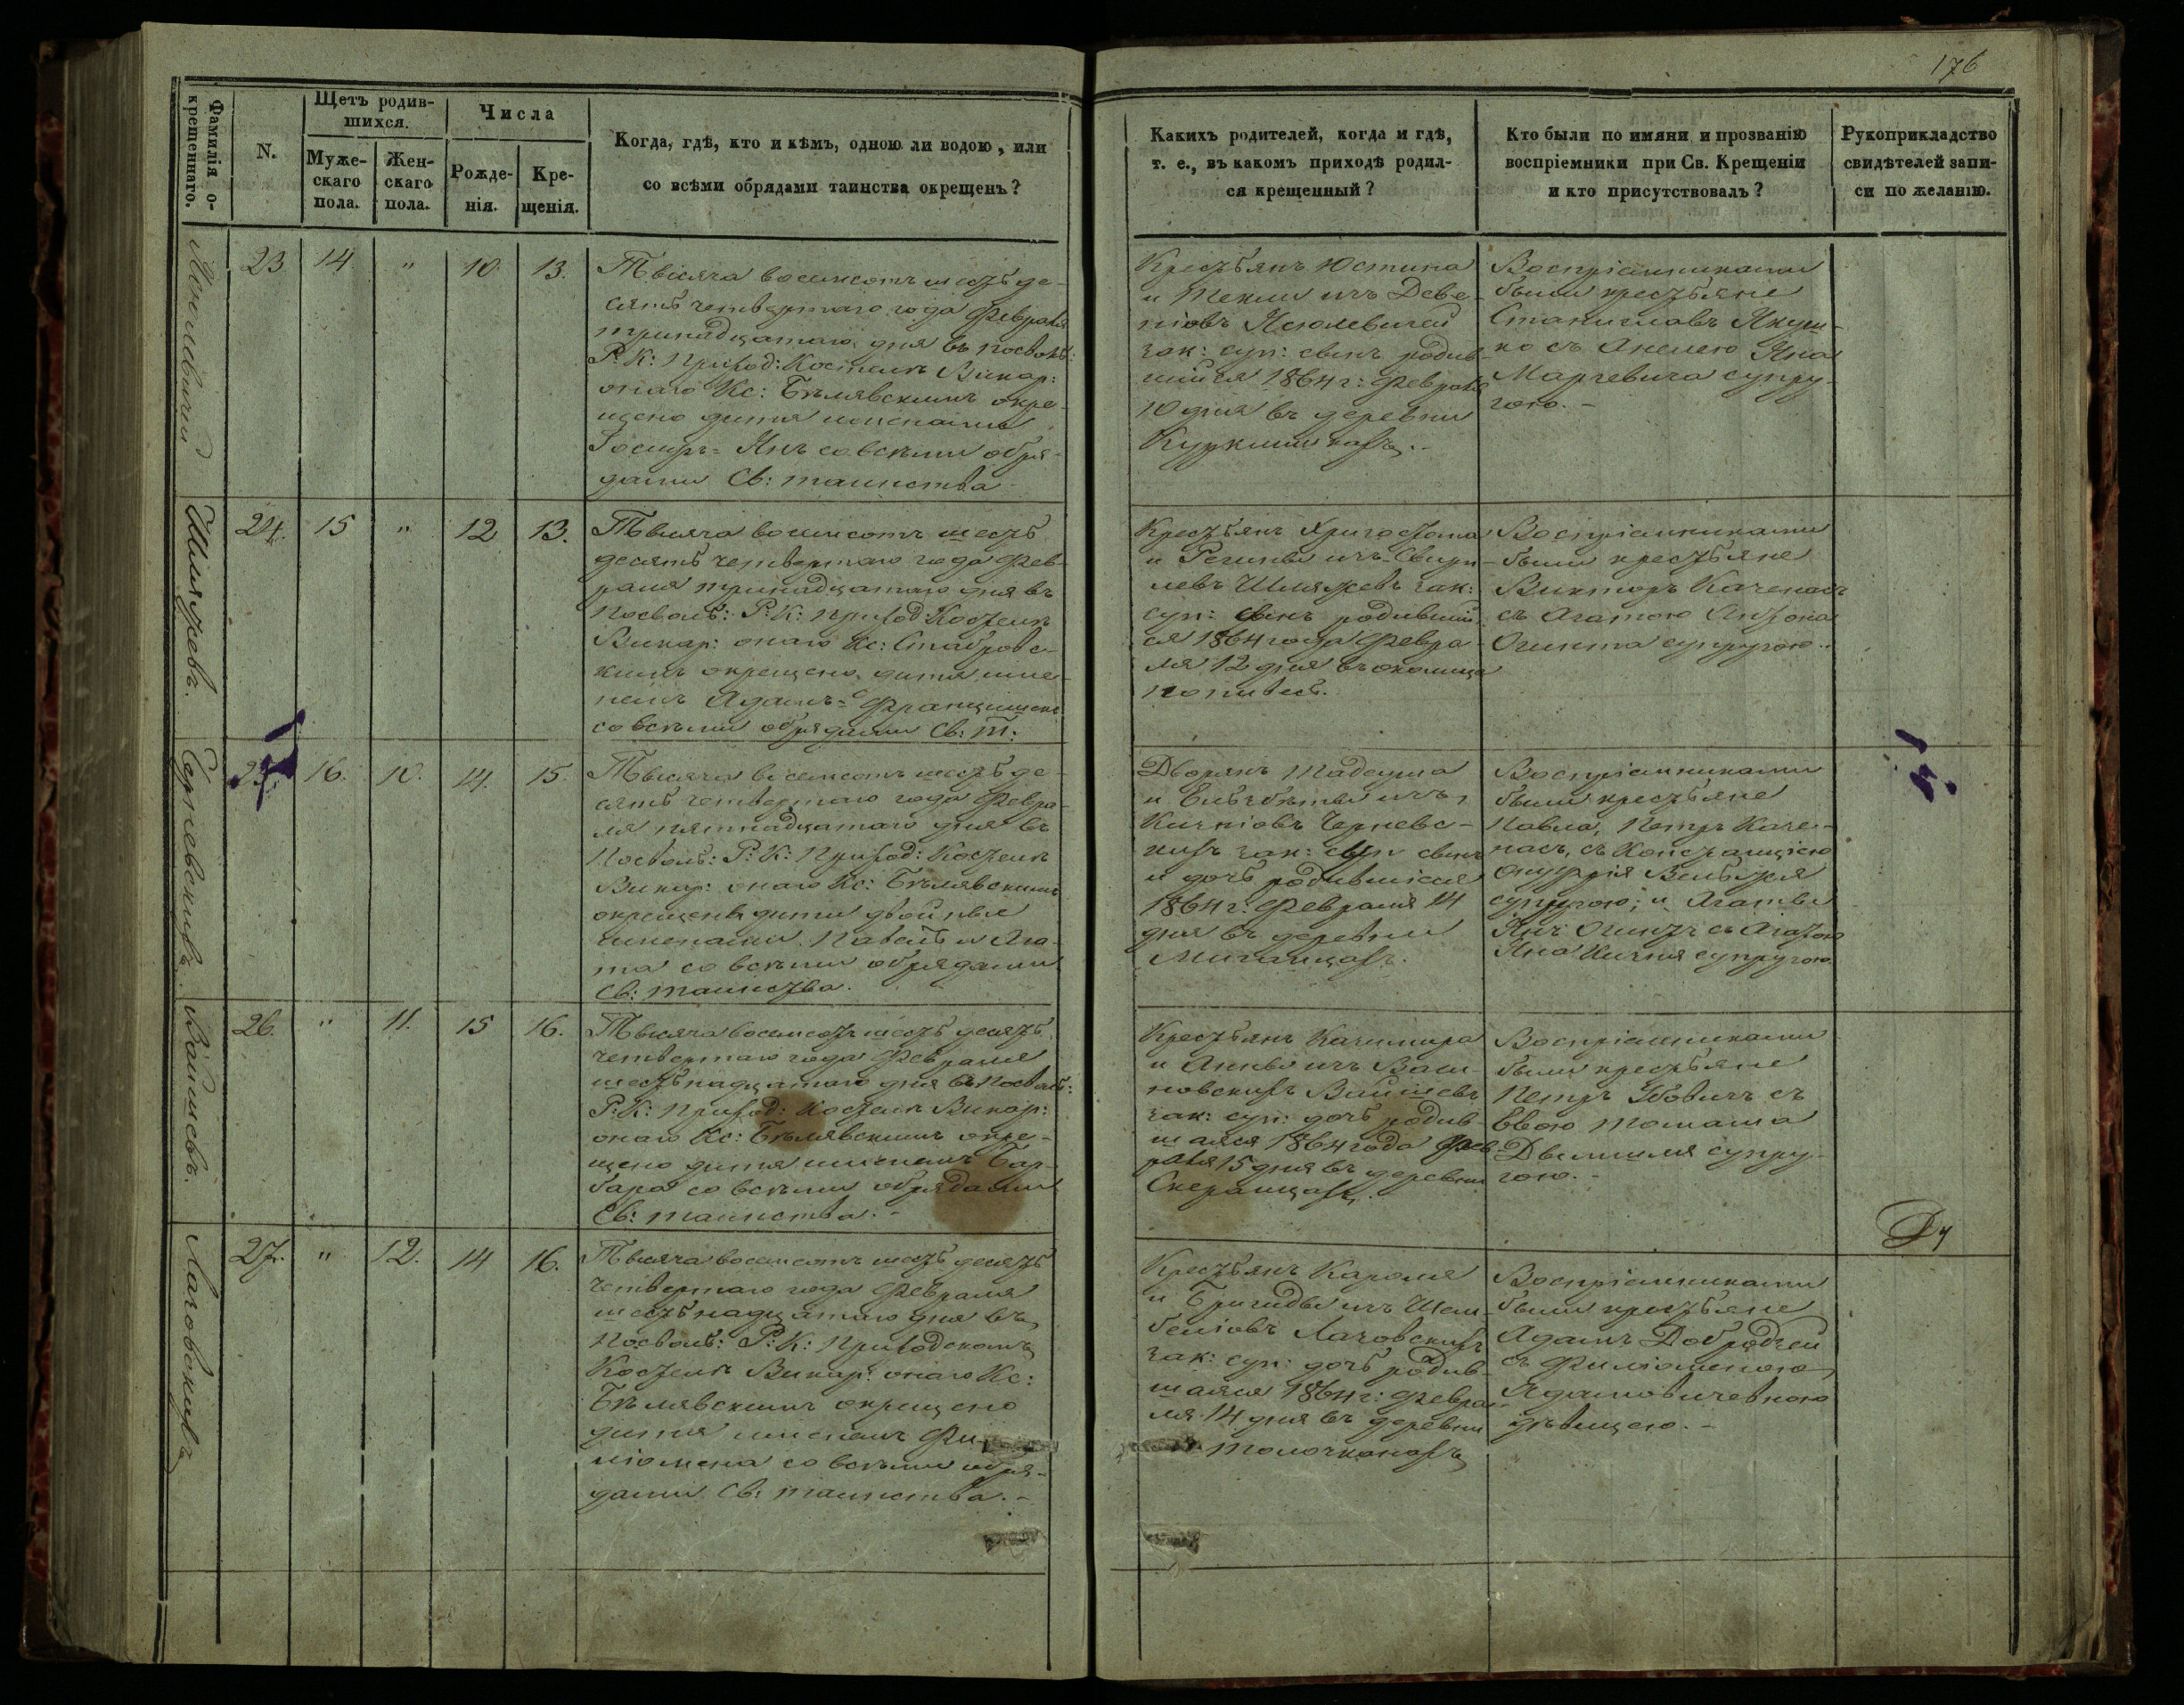 176
Фамилія о-
крещеннаго.
N.
Щетъ родив-
шихся.
Муже-
скаго
пола.
Жен-
скаго
пола.
Числа
Рожде-
нія.
Кре-
щенія.
Когда, гдѣ, кто и кѣмъ, одною ли водою, или
со всѣми обрядами таинства окрещенъ?
Каких родителей, когда и гдѣ,
т. е., въ какомъ приходѣ родил-
ся крещенный?
Кто были по имяни и прозванію
воспріемники при Св. Крещеніи
и кто присутствовалъ?
Рукоприкладство
свидѣтелей запи-
си по желанію.
23 14. " 10 13.
Тысяча восемсотъ шесть де-
сять четвертаго года Февраля
тринадцатаго дня въ Посволь:
Р: К: Приход: Костелѣ Викар:
онаго Кс: Бѣлявскимъ окре-
щено дитя именами
Іосифъ-Янъ со всѣми обря-
дами Св: таинства
Крестьянъ Юстина
и Текли изъ Деве-
ніовъ
зак: суп: сынъ родив-
шійся 1864 г: Февраля
10 дня въ деревни
Воспріемниками
были крестьяне
Станиславъ Якуш-
ко съ Анелею Яна
Марчевича супру-
гою.-
Шляжевъ.
24. 15 " 12 13.
Тысяча восемсотъ шесть
десять четвертаго года Фев-
раля тринадцатаго дня въ
Посволь: Р: К: Приход: Костелѣ
Викар: онаго Кс: Стабровс-
кимъ окрещено дитя име-
немъ Адамъ-Францишекъ
со всѣми обрядами Св: Т:
Крестьянъ Хризостома
и Регины изъ Свирп-
левъ Шляжевъ зак:
суп: сынъ родившій-
ся 1864 года Февра-
ля 12 дня въ околица
Воспріемниками
были крестьяне
Викторъ Каченасъ
съ Агатою Антона
Огинта супругою..
Черневскихъ.
25. 16. 10. 14. 15.
Тысяча восемсотъ шесть де-
сять четвертаго года Февра-
ля пятнадцатаго дня въ
Посволь: Р: К: Приход: Костелѣ
Викар: онаго Кс: Бѣлявскимъ
окрещены дити двойные
именами Павелъ и Ага-
та со всѣми обрядами
Св: таинства.
Дворянъ Тадеуша
и Елзбѣты изъ
Кичніовъ Черневс-
кихъ зак: суп сынъ
и дочь родившіеся
1864 г: Февраля 14
дня въ деревни
Миганцахъ.
Воспріемниками
были крестьяне
Павла, Петръ Каче-
насъ, съ Констанціею
Онуфрія
супругою; и Агаты
Янъ Огинтъ съ Агатою
Яна Кичня супругою.
26. " 11. 15 16.
Тысяча восемсотъ шесть десять
четвертаго года Февраля
шестьнадцатаго дня въ Посволь:
Р: К: Приход: Костелѣ Викар:
онаго Кс: Бѣлявскимъ окре-
щено дитя именемъ Бар-
бара со всѣми обрядами
Св: таинства.-
Крестьянъ Казимира
и Анны изъ Васи-
новскихъ
зак: суп: дочь родив-
шаяся 1864 года Фев-
раля 15 дня въ деревни
Скеранцахъ.
Воспріемниками
были крестьяне
Петръ съ
Евою Томаша
супру-
гою.-
Лаговскихъ
27. " 12. 14 16.
Тысяча восемсотъ шесть десять
четвертаго года Февраля
шестьнадцатаго дня въ
Посволь: Р: К: Приходскомъ
Костелѣ Викар: онаго Кс:
Бѣлявскимъ окрещено
дитя именемъ Фи-
ліомена со всѣми обря-
дами Св: таинства.-
Крестьянъ Кароля
и Бригиды изъ Шем-
беліовъ Лаговскихъ
зак: суп: дочь родив-
шаяся 1864 г: Февра-
ля 14 дня въ деревни
Толочканахъ
Воспріемниками
были крестьяне
Адамъ Добродзей
съ Филіоменою
Адамовичевною
дѣвицею.-